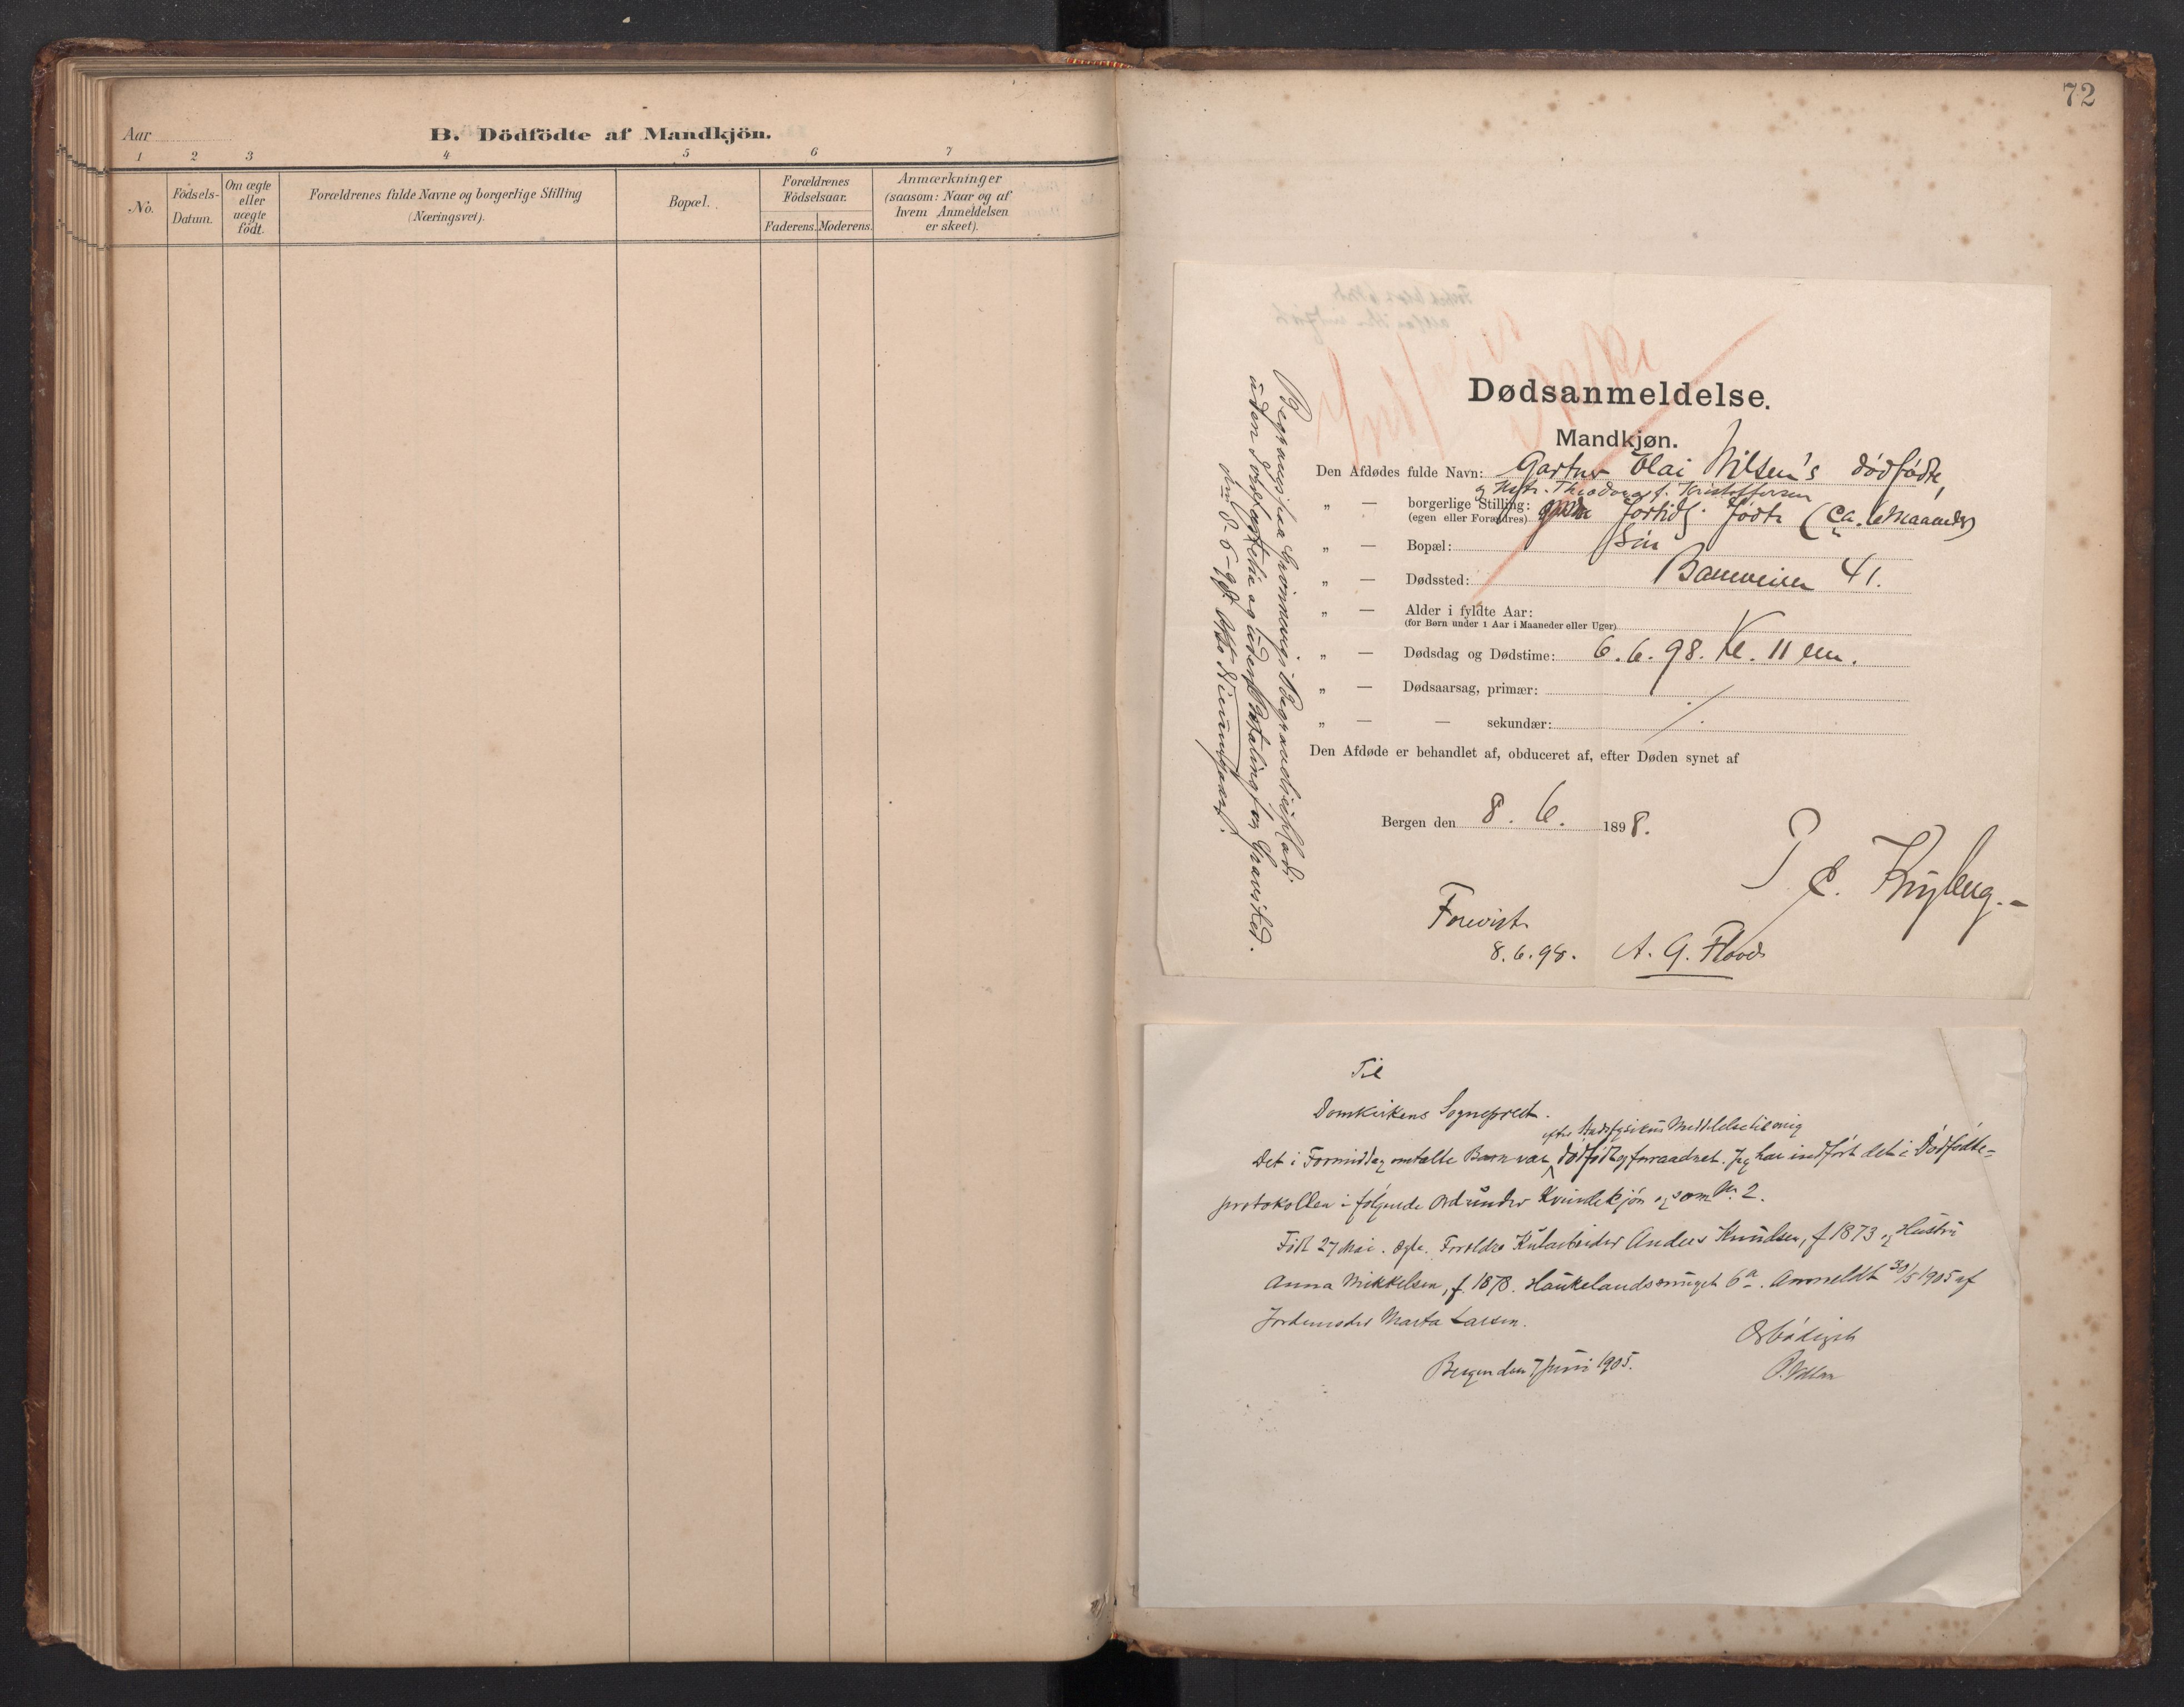 Aar
B. Dödfödte af Mandkjön.
1 2 3 4 5 6 7
No.
Födsels-
Datum.
Om ægte
eller
uægte
födt.
Forældrenes fulde Navne og borgerlige Stilling
(Næringsvei).
Bopæl.
Forældrenes
Födselsaar.
Faderens. Moderens.
Anmærkninger
(saasom: Naar og af
hvem Anmeldelsen
er skeet).
72
Dødsanmeldelse.
Mandkjøn.
Den Afdødes fulde Navn: Gartner Olai Nilsen's dødfødte,
og Hstr. Theodora f. Kristoffersen
„ — borgerlige Stilling: fortidl. fødte (ca. 6 Maaneder)
(egen eller Forældres)
„ — Bopæl: Søn
„ — Dødssted: Baneveien 41.
„ — Alder i fyldte Aar:
(for Børn under 1 Aar i Maaneder eller Uger)
„ — Dødsdag og Dødstime: 6.6.98. Kl. 11 em.
„ — Dødsaarsag, primær:
„ — — sekundær:
Den Afdøde er behandlet af, obduceret af, efter Døden synet af
Bergen den 8. 6. 1898.
P. C. Krybeng.
Forevist
8.6.98. A. G. Flood
Begraves paa Begravelsesplads
uden Jordpaakastelse og uden Betaling for Gravsted.
Til
Domkirkens Sogneprest.
efter Stadsfysicus Meddelelse til mig
Det i Formiddag omtalte Barn var dødfødt og forraadnet. Jeg har indført det i Dødfødte-
protokollen i følgende Ord under Kvindekjøn og som No. 2.
Født 27 Mai. Ægte. Foreldre Kularbeider Anders Knudsen, f 1873 og Hustru
Anna Mikkelsen, f. 1878. Haukelandssmuget 6a. Anmeldt 30/5 1905 af
Jordemoder Marta Larsen.
Ærbødigst
Bergen den 7 Juni 1905.